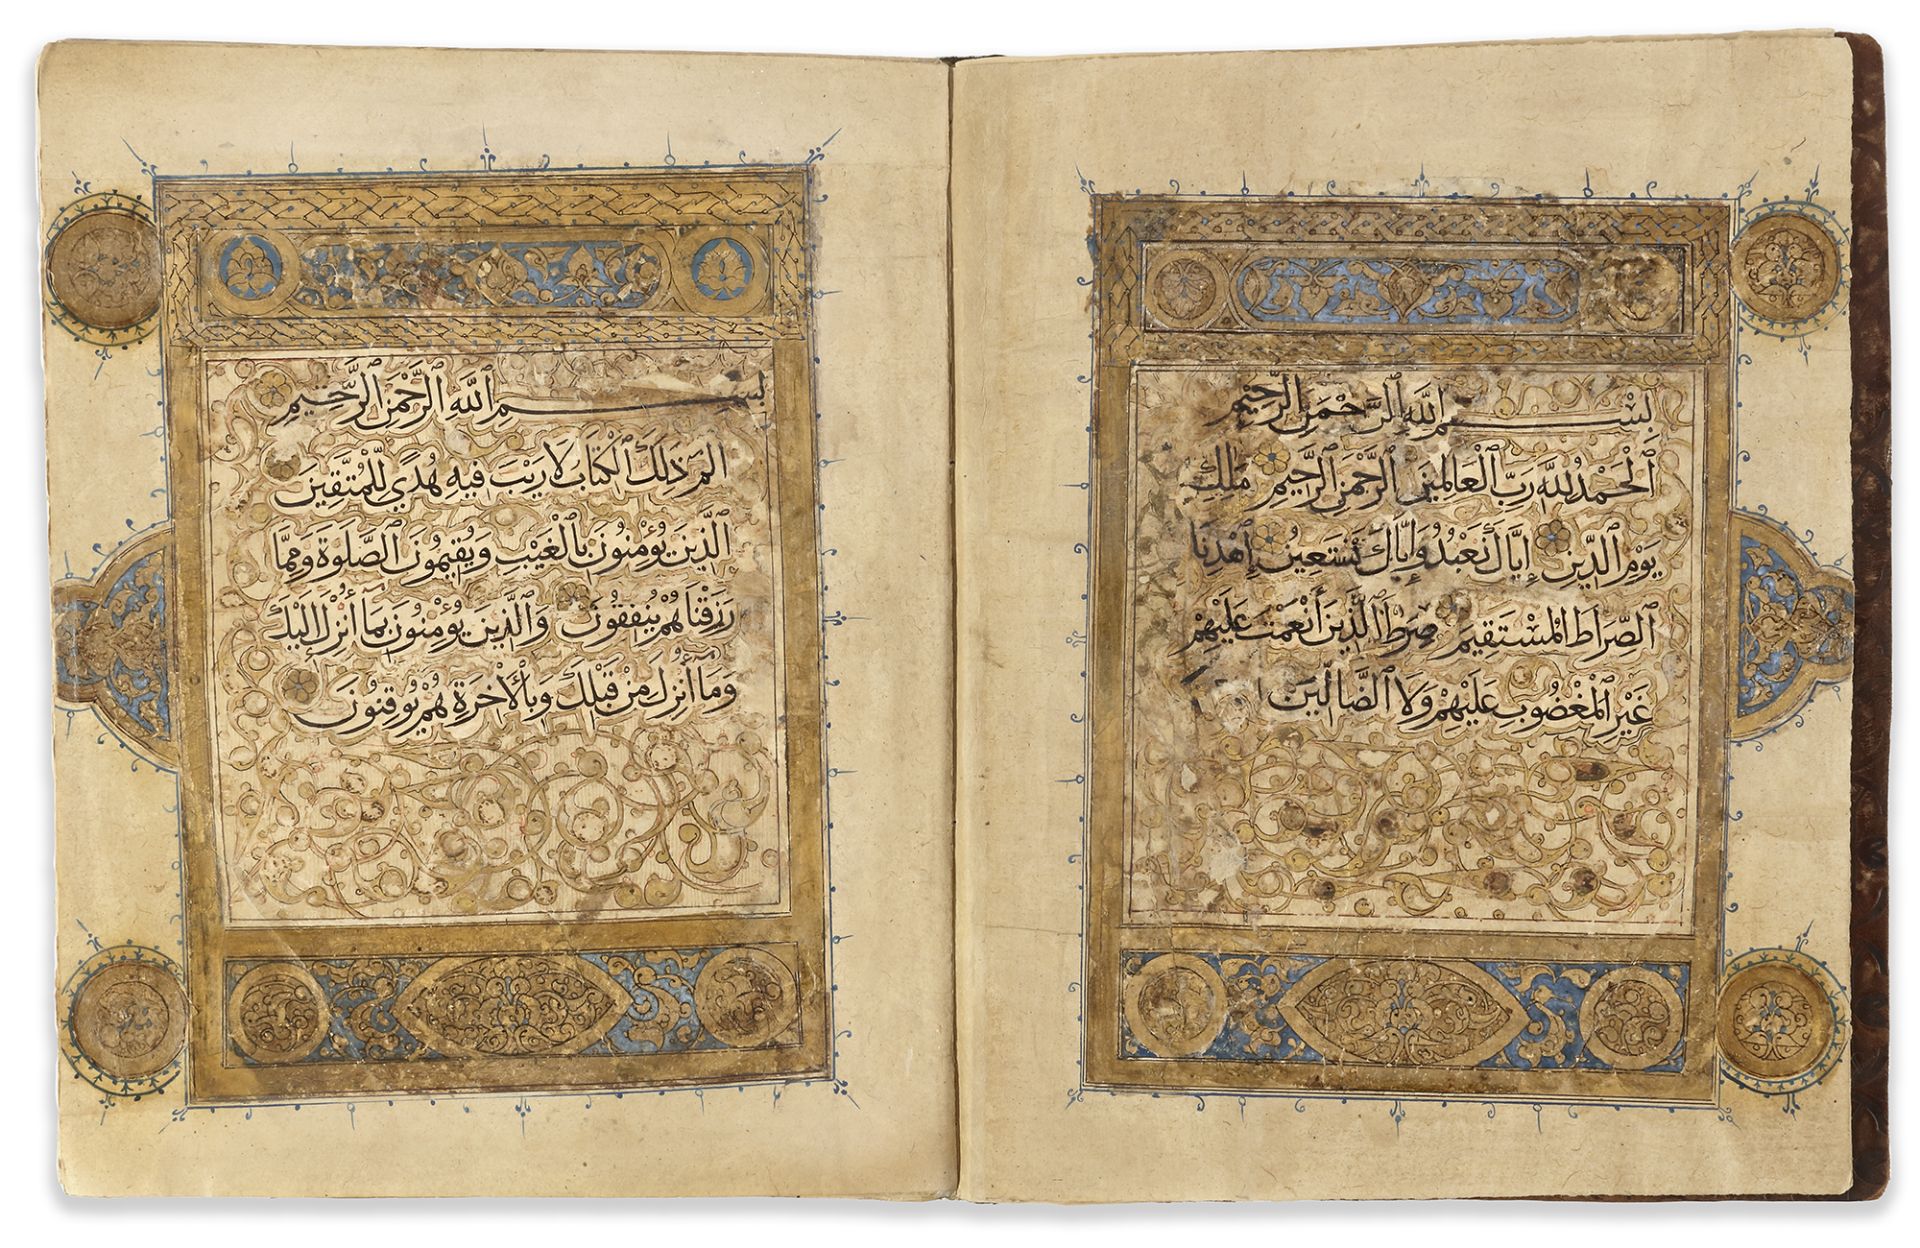 بِسْمِ ٱللَّهِ ٱلرَّحْمَٰنِ ٱلرَّحِيمِ
ٱلْحَمْدُ لِلَّهِ رَبِّ ٱلْعَالَمِينَ ٱلرَّحْمَٰنِ ٱلرَّحِيمِ مَلِكِ
يَوْمِ ٱلدِّينِ إِيَّاكَ نَعْبُدُ وَإِيَّاكَ نَسْتَعِينُ ٱهْدِنَا
ٱلصِّرَاطَ ٱلْمُسْتَقِيمَ صِرَطَ ٱلَّذِينَ أَنْعَمْتَ عَلَيْهِمْ
غَيْرِ ٱلْمَغْضُوبِ عَلَيْهِمْ وَلَا ٱلضَّالِّينَ
بِسْمِ ٱللَّهِ ٱلرَّحْمَٰنِ ٱلرَّحِيمِ
الم ذَلِكَ ٱلْكِتَابُ لَا رَيْبَ فِيهِ هُدًى لِلْمُتَّقِينَ
ٱلَّذِينَ يُؤْمِنُونَ بِٱلْغَيْبِ وَيُقِيمُونَ ٱلصَّلَوةَ وَمِمَّا
رَزَقْنَاهُمْ يُنْفِقُونَ وَٱلَّذِينَ يُؤْمِنُونَ بِمَا أُنْزِلَ إِلَيْكَ
وَمَا أُنْزِلَ مِنْ قَبْلِكَ وَبِٱلْأَخِرَةِ هُمْ يُوقِنُونَ